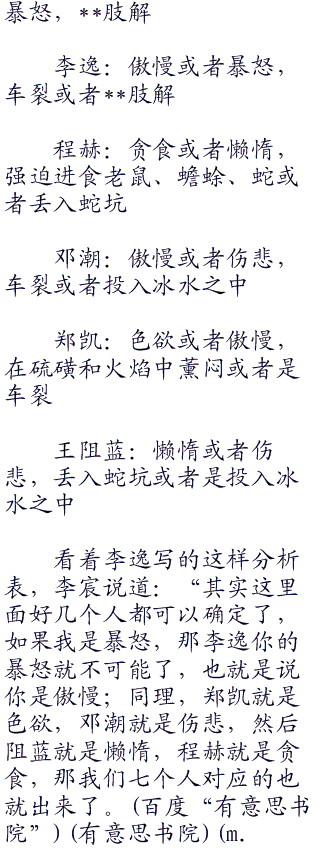 暴怒，**肢解
李逸：傲慢或者暴怒，
车裂或者**肢解
程赫：贪食或者懒惰，
强迫进食老鼠、蟾蜍、蛇或
者丢入蛇坑
邓潮：傲慢或者伤悲，
车裂或者投入冰水之中
郑凯：色欲或者傲慢，
在硫磺和火焰中薰闷或者是
车裂
王阻蓝：懒惰或者伤
悲，丢入蛇坑或者是投入冰
水之中
看着李逸写的这样分析
表，李宸说道：“其实这里
面好几个人都可以确定了，
如果我是暴怒，那李逸你的
暴怒就不可能了，也就是说
你是傲慢；同理，郑凯就是
色欲，邓潮就是伤悲，然后
阻蓝就是懒惰，程赫就是贪
食，那我们七个人对应的也
就出来了。(百度“有意思书
院”)(有意思书院)(m.